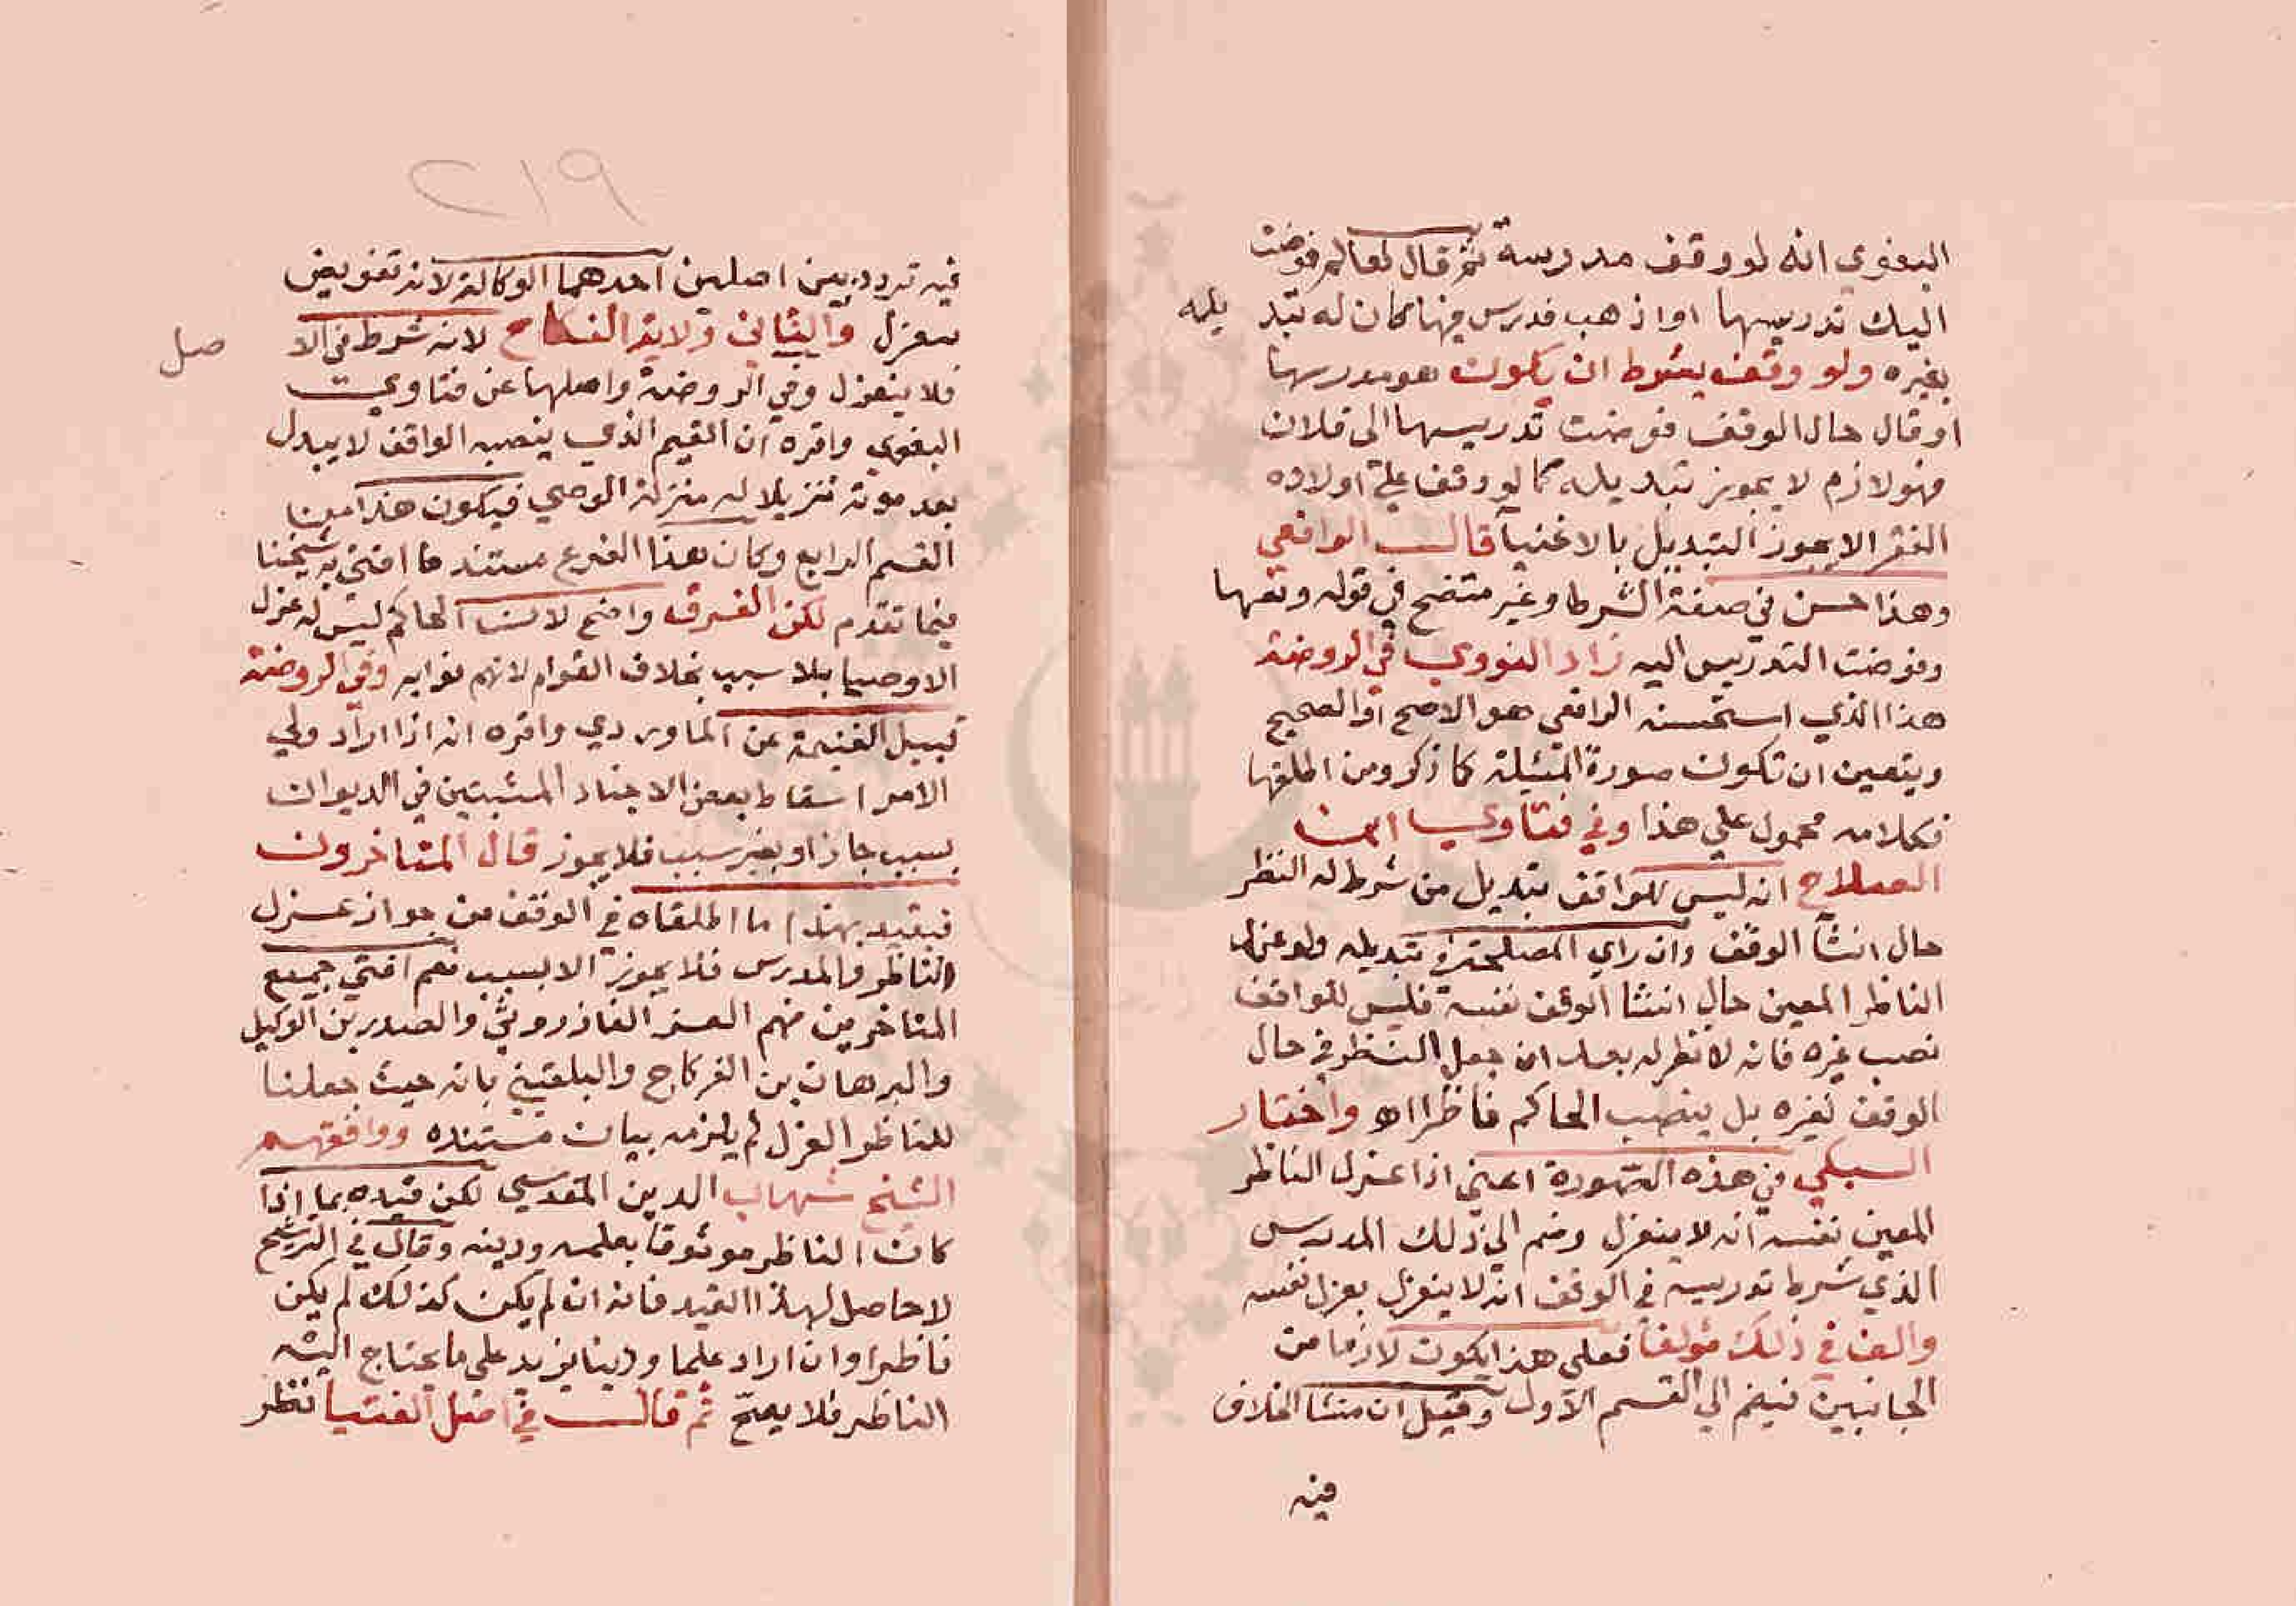 البغوي انه لو وقف مدرسة ثم قال لعالم فوضت
اليك تدريسها او اذهب فدرس فيها كان له تبديله
بغيره ولو وقف بشرط ان يكون هو مدرسها
او قال حال الوقف فوضت تدريسها الى فلان
فهو لازم لا يجوز تبديله كما لو وقف على اولاده
الفقرا لا يجوز التبديل بالاغنيا قال الرافعي
وهذا حسن في صيغة الشرط وغير متضح في قوله وقفها
وفوضت التدريس اليه زاد النووي في الروضة
هذا الذي استحسنه الرافعي هو الاصح او الصحيح
ويتعين ان تكون صورة المسئلة كما ذكر ومن اطلقها
فكلامه محمول على هذا وفي فتاوي ابن
الصلاح انه ليس للواقف تبديل من شرط له النظر
حال انشآ الوقف وان راي المصلحة في تبديله ولو عزل
الناظر المعين حال انشا الوقف نفسه فليس للواقف
نصب غيره فانه لا نظر له بعد ان جعل النظر في حال
الوقف لغيره بل ينصب الحاكم ناظرا اه واختار
السبكي في هذه الصورة اعني اذا عزل الناظر
المعين نفسه انه لا ينعزل وضم الي ذلك المدرس
الذي شرط تدريسه في الوقف انه لا ينعزل بعزل نفسه
والف في ذلك مؤلفا فعلى هذا يكون لازما من
الجانبين فيضم الي القسم الاول وقيل ان منشا الخلاف
فيه
٢١٩
فيه تردد بين اصلين احدهما الوكالة لانه تفويض
فينعزل والثاني ولاية النكاح لانه شرط في الاصل
فلا ينعزل وفي الروضة واصلها عن فتاوي
البغوي واقره ان القيم الذي ينصبه الواقف لا يبدل
بعد موته تنزيلا له منزلة الوصي فيكون هذا من
القسم الرابع وكان هذا الفرع مستند ما افتى به شيخنا
فيما تقدم لكن الفرق واضح لان الحاكم ليس له عزل
الاوصيا بلا سبب بخلاف القوام لانهم نوابه وفي الروضة
قبيل الغنيمة عن الماوردي واقره انه اذا اراد ولي
الامر اسقاط بعض الاجناد المثبتين في الديوان
بسبب جاز او بغير سبب فلا يجوز قال المتاخرون
فيقيد بهذا ما اطلقاه في الوقف من جواز عزل
الناظر والمدرس فلا يجوز الا لسبب نعم افتى جميع
المتاخرين منهم العز الفاروثي والصدر بن الوكيل
والبرهان بن الفركاح والبلقيني بانه حيث جعلنا
للناظر العزل لم يلزمه بيان مستنده ووافقهم
الشيخ شهاب الدين المقدسي لكن قيده بما اذا
كان الناظر موثوقا بعلمه ودينه وقال في الترشيح
لا حاصل لهذا القيد فانه ان لم يكن كذلك لم يكن
ناظرا وان اراد علما ودينا يزيد على ما يحتاج اليه
الناظر فلا يصح ثم قال في اصل الفتيا نظر